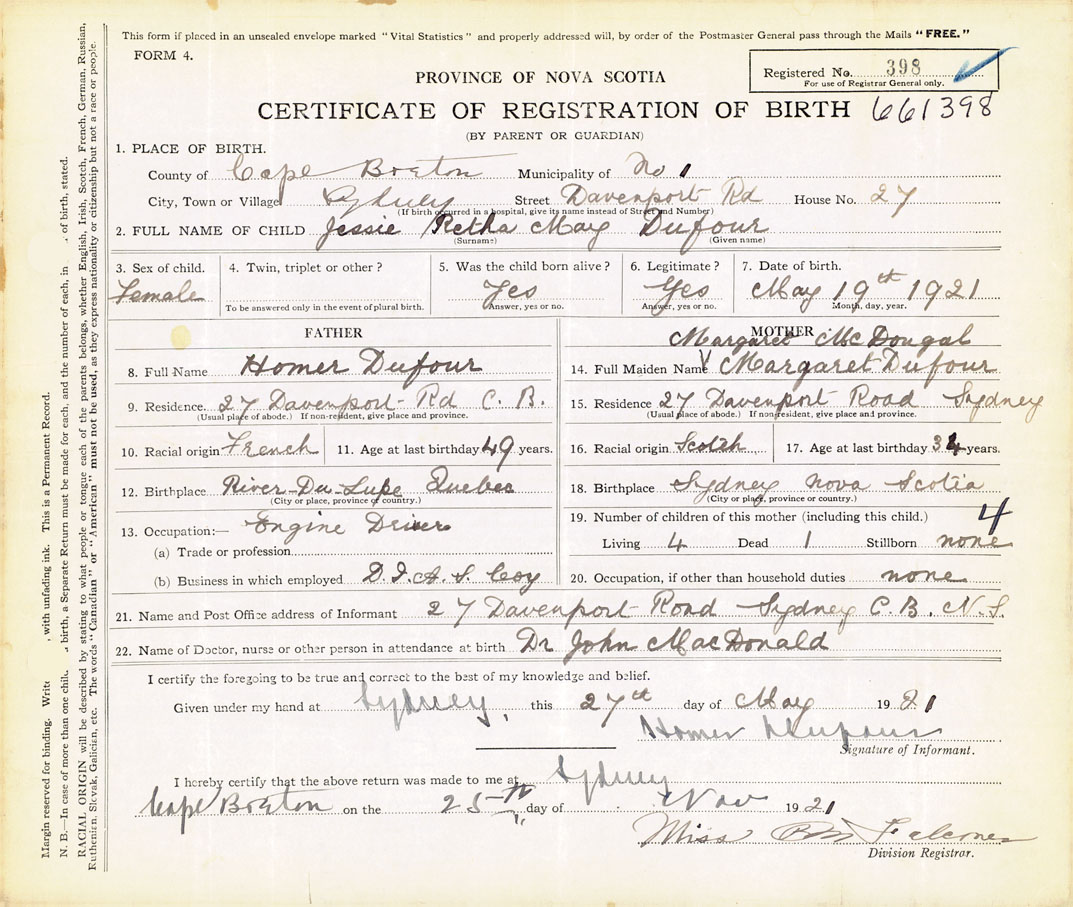 This form if placed in an unsealed envelope marked "Vital Statistics" and properly addressed will, by order of the Postmaster General pass through the Mails "FREE."
FORM 4.
Registered No. 398
For use of Registrar General only.
PROVINCE OF NOVA SCOTIA
CERTIFICATE OF REGISTRATION OF BIRTH 661398
(BY PARENT OR GUARDIAN)
1. PLACE OF BIRTH.
County of Cape Breton Municipality of No 1
City, Town or Village Sydney Street Davenport Rd House No. 27
(If birth occurred in a hospital, give its name instead of Street and Number)
2. FULL NAME OF CHILD Jessie Retha May Dufour
(Surname) (Given name)
3. Sex of child. 4. Twin, triplet or other? 5. Was the child born alive? 6. Legitimate? 7. Date of birth.
Female Yes Yes May 19th 1921
To be answered only in the event of plural birth. Answer, yes or no. Answer, yes or no. Month, day, year.
FATHER
8. Full Name Homer Dufour
9. Residence. 27 Davenport Rd C. B.
(Usual place of abode.) If non-resident, give place and province.
10. Racial origin French 11. Age at last birthday 49 years.
12. Birthplace River-Du-Lupe Quebec
(City or place, province or country.)
13. Occupation:— Engine Driver
(a) Trade or profession
(b) Business in which employed D. I. & S. Coy
MOTHER
Margaret McDougal
14. Full Maiden Name Margaret Dufour
15. Residence 27 Davenport Road Sydney
(Usual place of abode.) If non-resident, give place and province.
16. Racial origin Scotch 17. Age at last birthday 34 years.
18. Birthplace Sydney Nova Scotia
(City or place, province or country.)
19. Number of children of this mother (including this child.) 4
Living 4 Dead 1 Stillborn none
20. Occupation, if other than household duties none
21. Name and Post Office address of Informant 27 Davenport Road Sydney C. B. N. S.
22. Name of Doctor, nurse or other person in attendance at birth Dr John MacDonald
I certify the foregoing to be true and correct to the best of my knowledge and belief.
Given under my hand at Sydney, this 27th day of May 1921
Homer Dufour
Signature of Informant.
I hereby certify that the above return was made to me at Sydney
Cape Breton on the 25th day of Nov 1921
Miss Falconer
Division Registrar.
Margin reserved for binding. Write with unfading ink. This is a Permanent Record.
N. B.—In case of more than one birth, a Separate Return must be made for each, and the number of each, in of birth, stated.
RACIAL ORIGIN will be described by stating to what people or tongue each of the parents belongs, whether English, Irish, Scotch, French, German, Russian,
Ruthenian, Slovak, Galician, etc. The words "Canadian" or "American" must not be used, as they express nationality or citizenship but not a race or people.